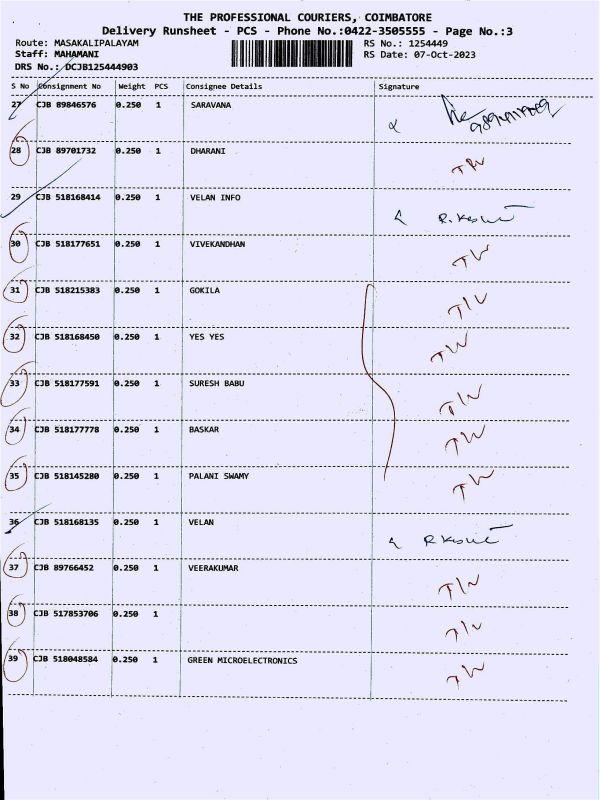 THE PROFESSIONAL COURIERS, COIMBATORE
Delivery Runsheet - PCS - Phone No.:0422-3505555 - Page No.:3
Route: MASAKALIPALAYAM RS No.: 1254449
Staff: MAHAMANI RS Date: 07-Oct-2023
DRS No.: DCJB125444903
S No Consignment No Weight PCS Consignee Details Signature
27 CJB 89846576 0.250 1 SARAVANA
28 CJB 89701732 0.250 1 DHARANI
29 CJB 518168414 0.250 1 VELAN INFO
30 CJB 518177651 0.250 1 VIVEKANDHAN
31 CJB 518215383 0.250 1 GOKILA
32 CJB 518168450 0.250 1 YES YES
33 CJB 518177591 0.250 1 SURESH BABU
34 CJB 518177778 0.250 1 BASKAR
35 CJB 518145280 0.250 1 PALANI SWAMY
36 CJB 518168135 0.250 1 VELAN
37 CJB 89766452 0.250 1 VEERAKUMAR
38 CJB 517853706 0.250 1
39 CJB 518048584 0.250 1 GREEN MICROELECTRONICS